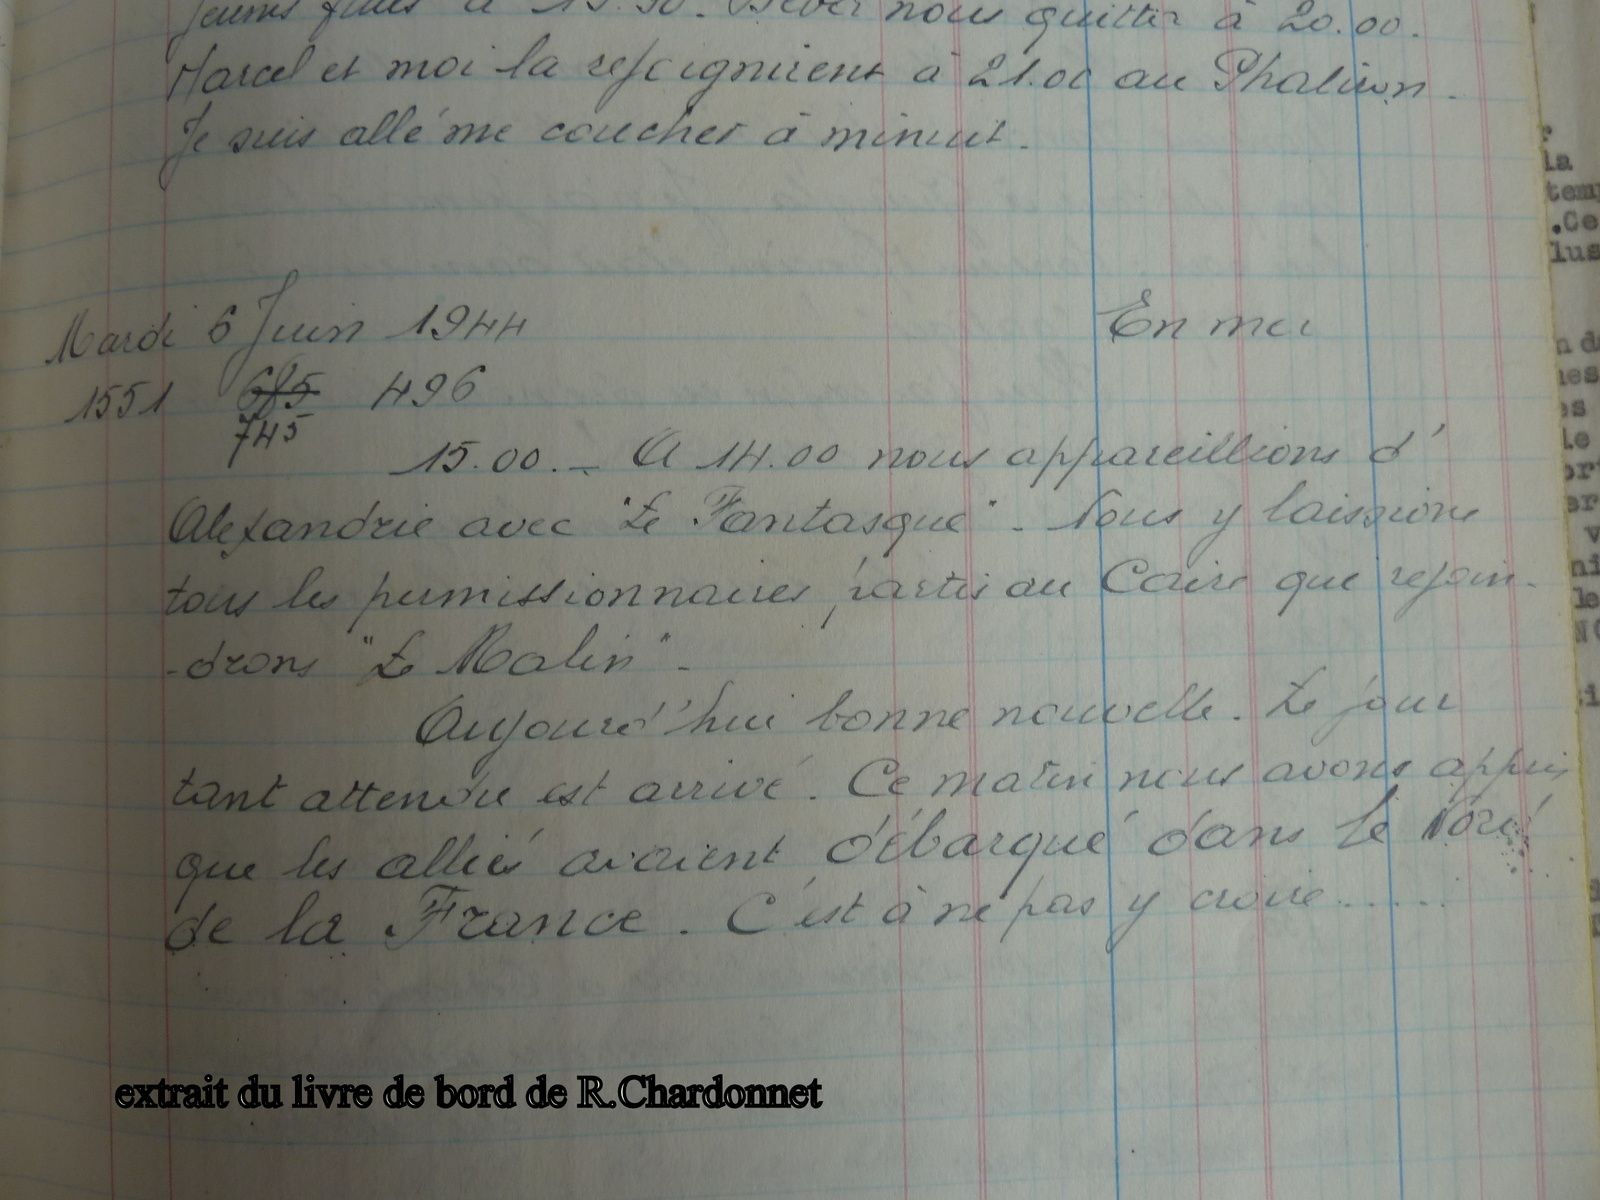 nous quitter à 20.00.
Marcel et moi la rejoignirent à 21.00 au Phaliron.
Je suis allé me coucher à minuit.
Mardi 6 Juin 1944 En mer
1551 685 496
745
15.00. _ A 14.00 nous appareillions d'
Alexandrie avec "Le Fantasque". Nous y laissions
tous les permissionnaires partis au Caire que rejoin-
-drons "Le Malin".
Aujourd'hui bonne nouvelle. Le jour
tant attendu est arrivé. Ce matin nous avons appris
que les alliés avaient débarqué dans le Nord
de la France. C'est à ne pas y croire......
extrait du livre de bord de R.Chardonnet
la
temp
.Ce
lus